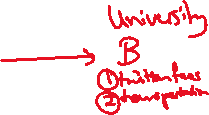 University
B
① tuition fees
② transportation